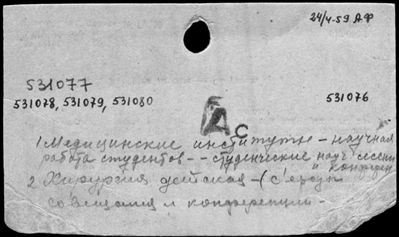 24/4-59 АФ
531077
531078, 531079, 531080
531076
Ас
1 Медицинские институты - научная
работа студентов - - студенческие науч. сессии
и конферен
2 Хирургия детская - (съезды
совещания и конференции -